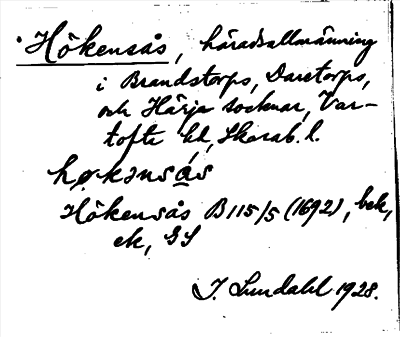 Hökensås, häradsallmänning
i Brandstorps, Daretorps,
och Härja socknar, Var-
tofta hd, Skarab. l.
høkənsås
Hökensås B115/5 (1692), bek,
ek, GS
I. Lundahl 1928.